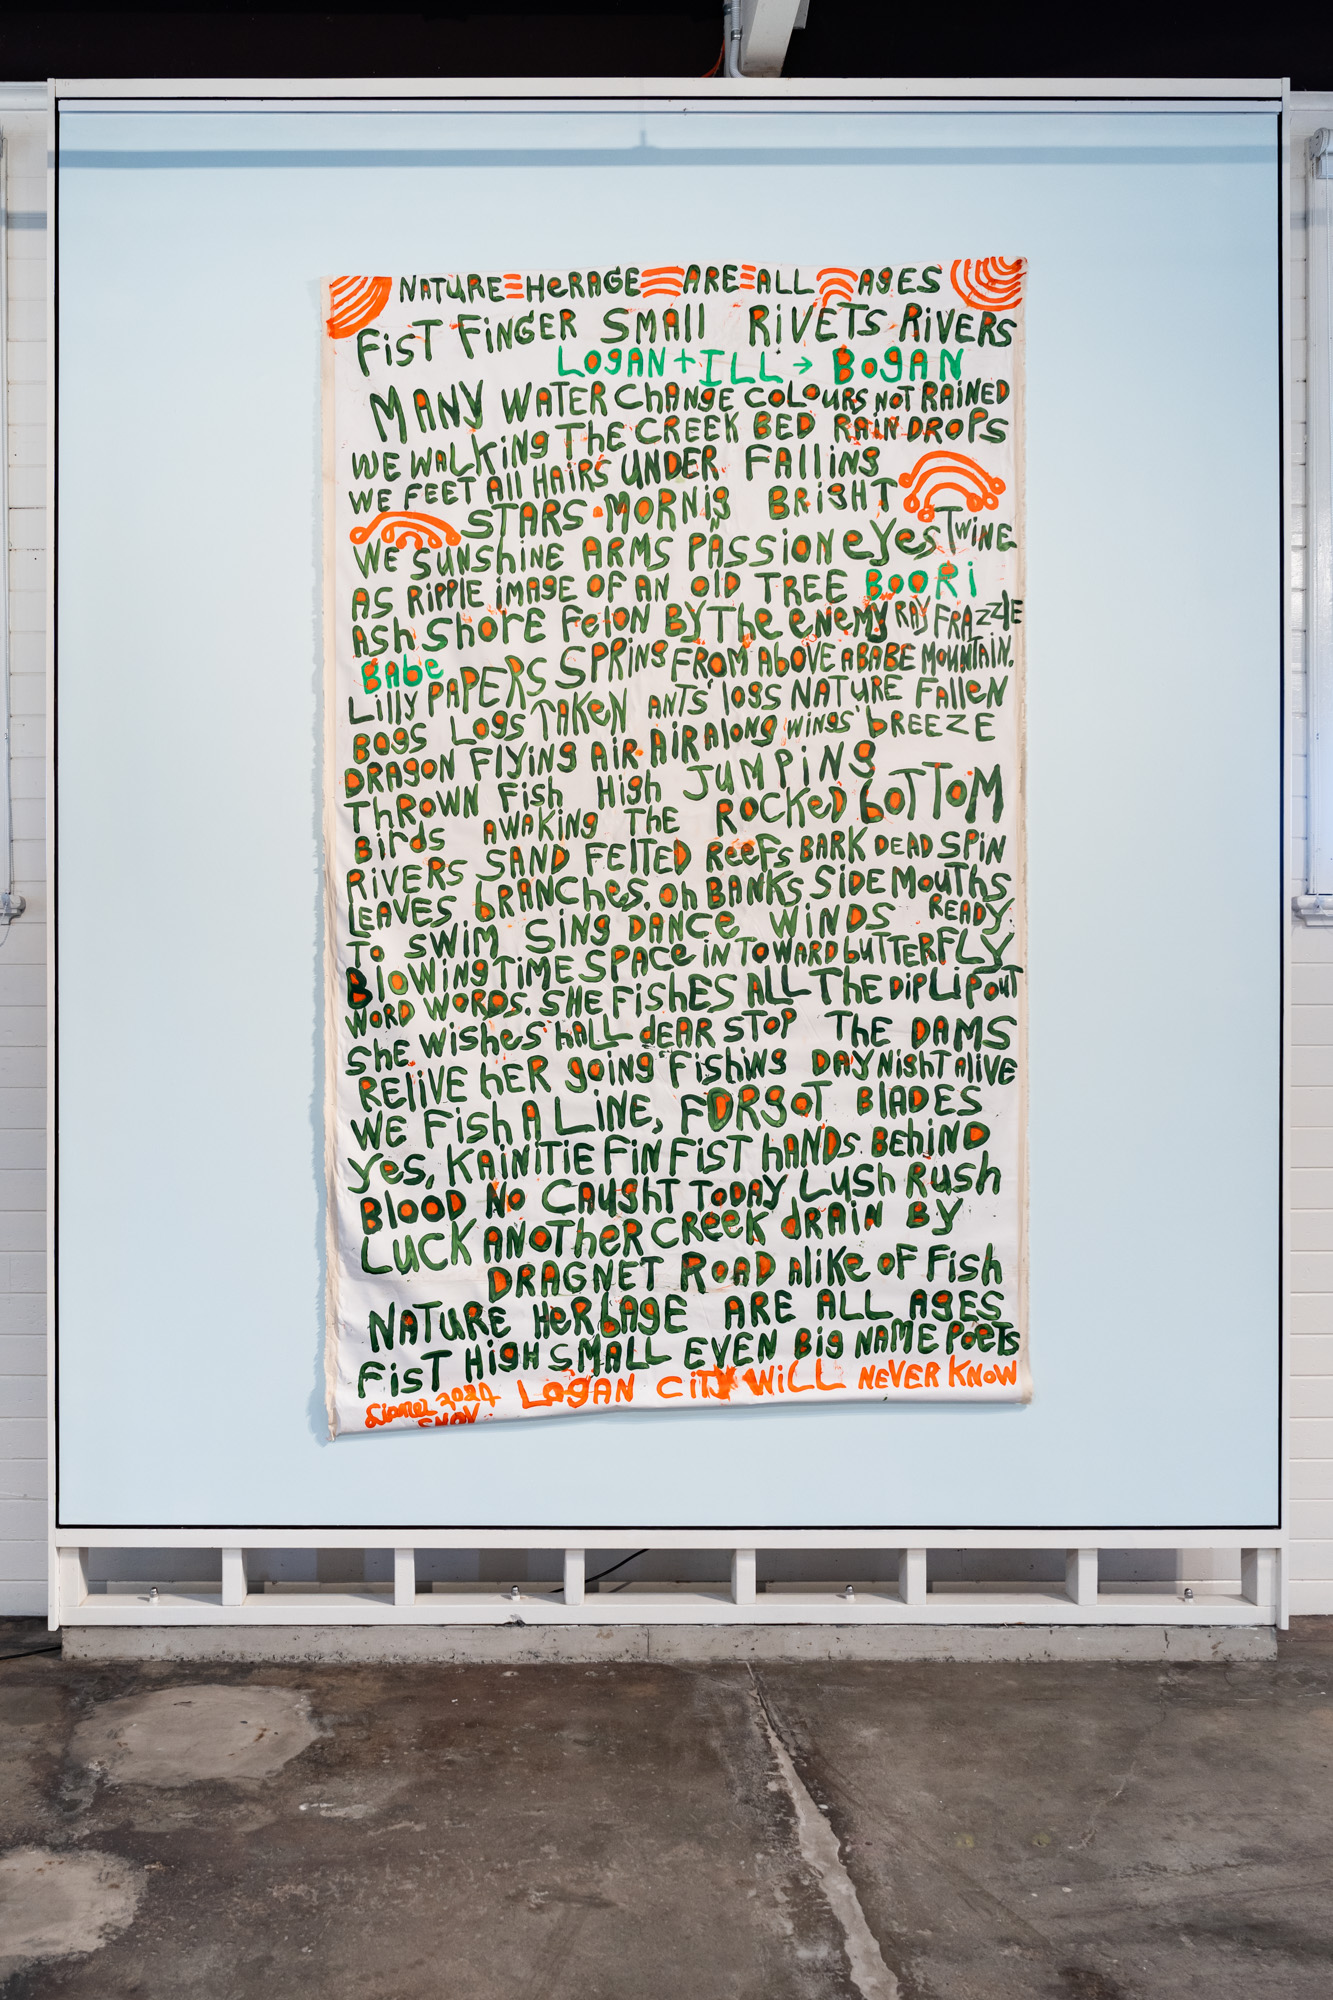 NATURE HERAGE ARE ALL AGES
FiST FiNGER SMAll RiVETS RiVERS
LOgAN + ILL → BOgAN
MANy WATER ChANgE COLOURS NOT RAiNED
WE WALKiNg ThE CREEK BED RAiN DROPS
WE FEET All HAIRS UNDER FAlliNg
STARS MORNig BRighT
WE SUNShiNE ARMS PASSiON eyes TWiNE
AS RiPPLE iMAgE OF AN OlD TREE BOORi
ASh ShORE FelON By The ENEMy RAy FRAZZlE
BAbe
Lilly PAPERS SPRiNg FROM AbOVE A BABE MOUNTAiN.
BOgS LOgS TAKEN ANTS' lOgS NATURE FAllEN
DRAgON FlyiNg AiR AiR AlONg WiNgS' bREEZE
ThROWN Fish High JUMPiNg
Birds AWAKiNg THE ROCKeD bOTTOM
RiVERS SAND FElTED ReeFs BARK DEAD SPiN
LEAVES bRANChes. Oh BANKS SiDE MOuThs
TO SWiM SiNg DANCe WiNDS READy.
BlOWiNg TiME SPACe iN TOWARD bUTTERFLy
WORD WORDS. SHE FiShES ALL The DiP LiP OUT
She WiSheS hALL dEAR STOP THE DAMS
RELiVE hER gOiNg FiShiNg DAy NighT AliVE
WE FiSh A LiNE, FORgOT BlADES
yes, KAiNiTiE FiN FiST hANDS BEhiND
BlOOD NO CAUghT TODAy LUSh RUSh
LUCK ANOThER CReeK dRAiN By
DRAGNET ROAD AliKe OF FiSh
NATURE HeRbAge ARE ALL AgES
FiST HigH SMALL EVEN Big NAME POeTS
LOgAN CiTy WiLL NEVER KNOW
Lionel 2024